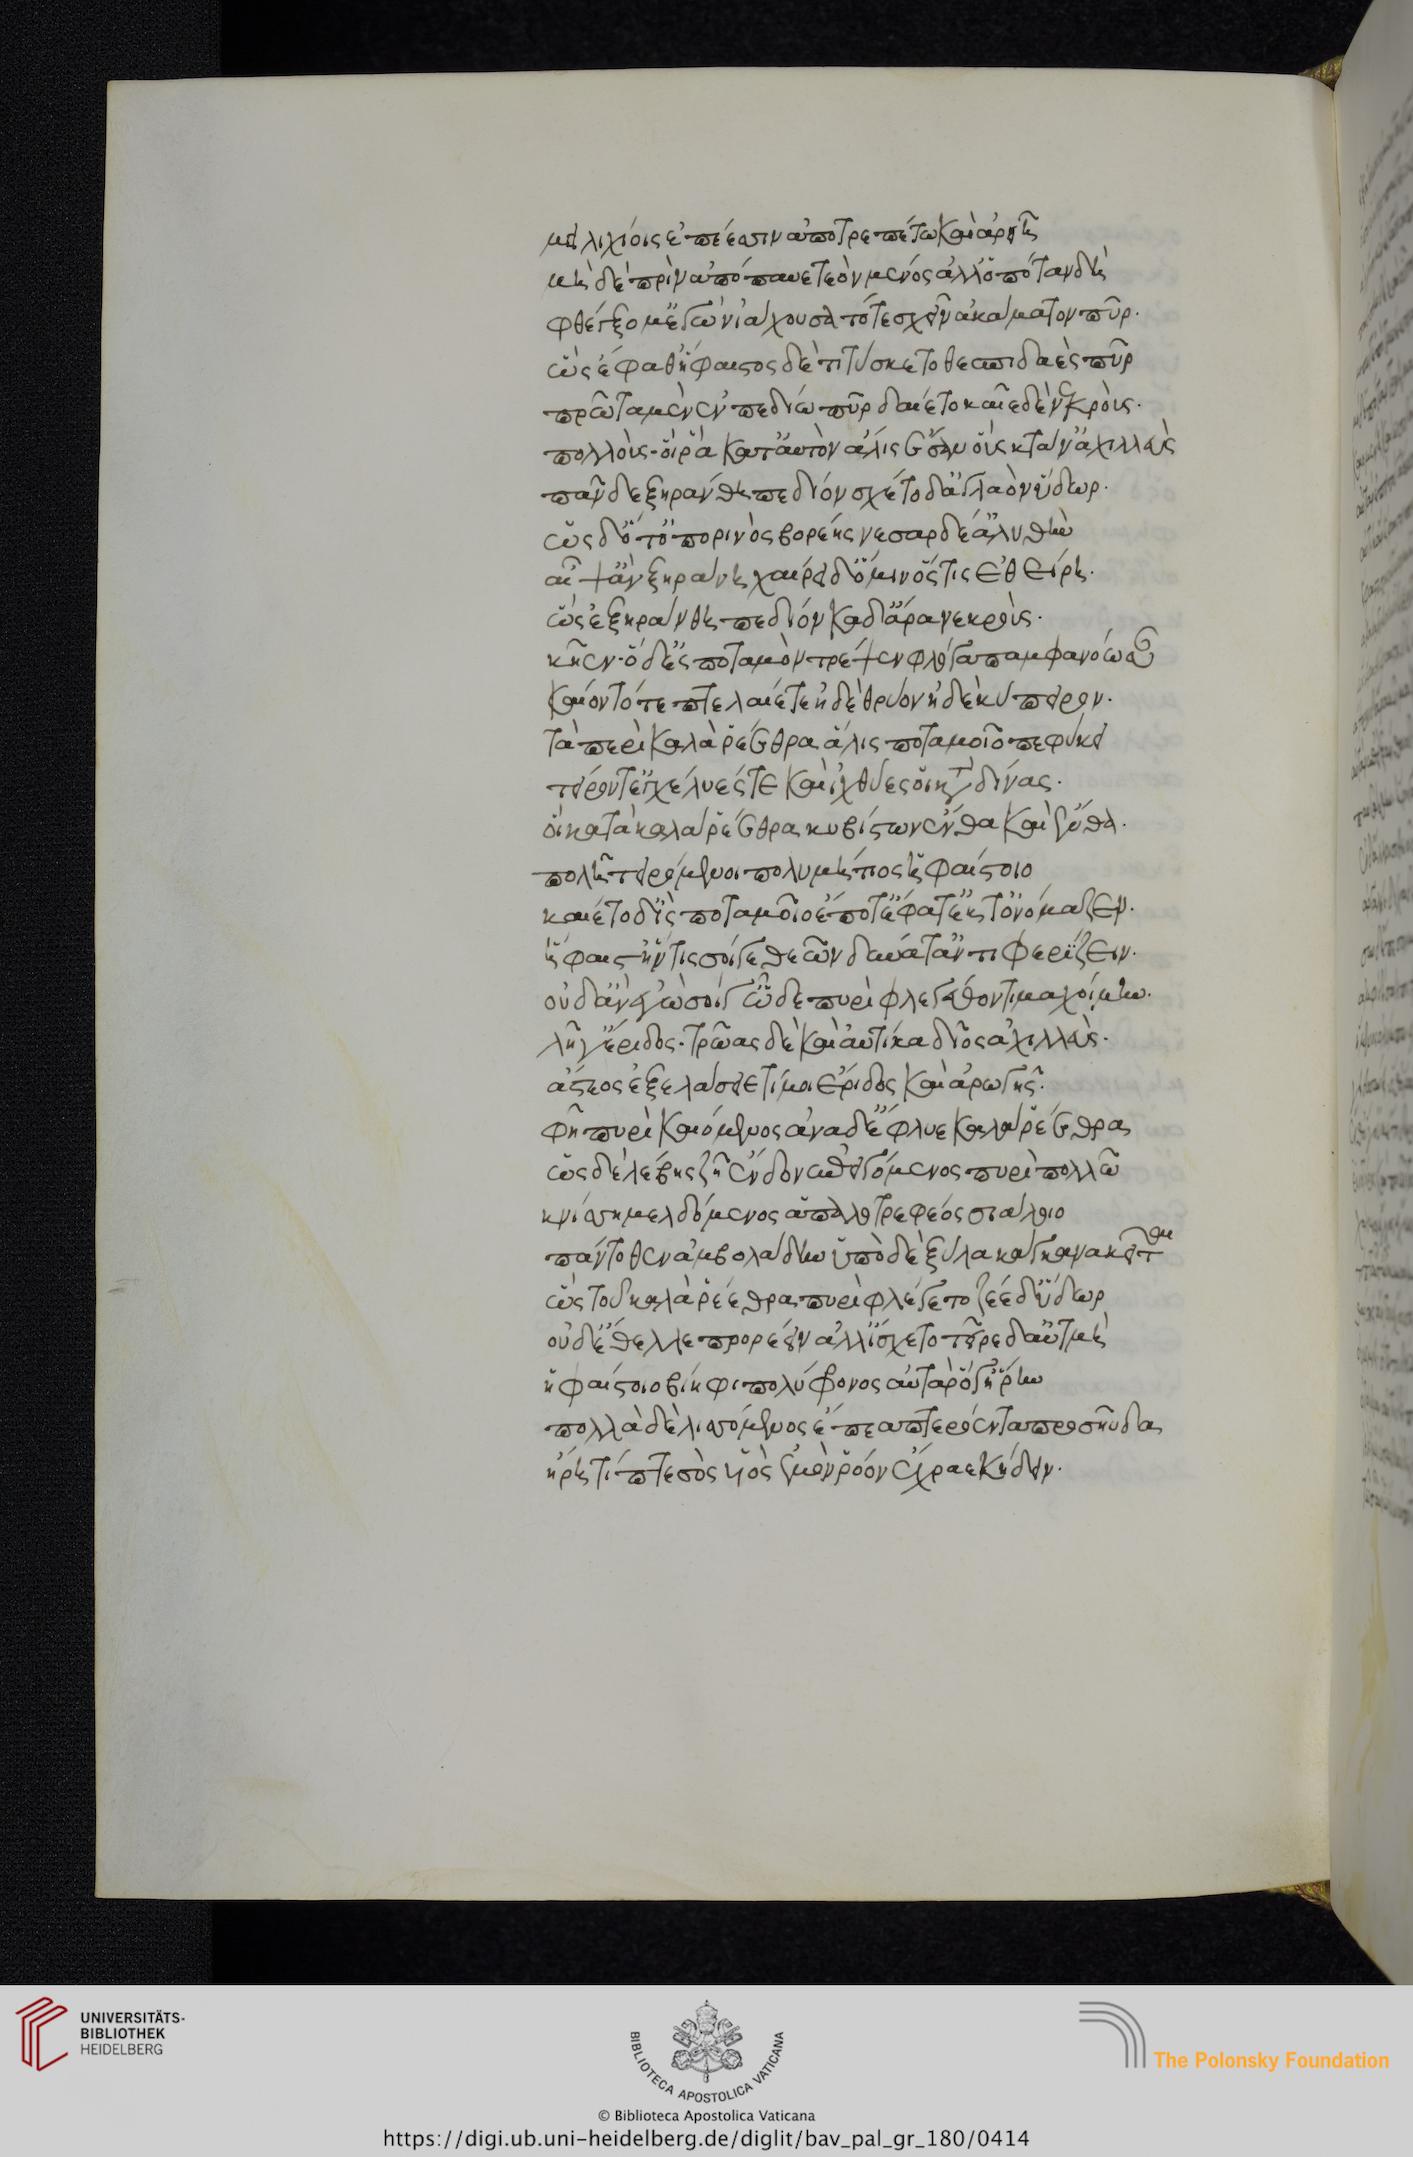 μειλιχίοις ἐπέεσιν ἀποτρεπέτω καὶ ἀρειῆ
μὴ δὲ πρὶν ἀπόπαυε τεὸν μένος ἀλλ ὁπόταν δὴ
φθέγξομ ἐγὼν ἰάχουσα τότε σχεῖν ἀκάματον πῦρ.
ὣς ἔφαθ ἥφαιστος δὲ τιτύσκετο θεσπιδαὲς πῦρ
πρῶτα μὲν ἐν πεδίω πῦρ δαίετο καῖε δὲ νεκροὺς.
πολλοὺς. οἵ ῥα κατ αὐτὸν ἅλις ἔσαν οὓς κτάν ἀχιλλεὺς
πᾶν δ ἐξηράνθη πεδίον σχέτο δ ἀγλαὸν ὕδωρ.
ὡς δ ὅτ ὀπορινὸς βορέης νεοαρδέ ἀλωὴν
αἶψ ἀνξηραίνη χαίρει δέ μιν ὅστις ἐθείρη.
ὣς ἐξηράνθη πεδίον καδ δ ἄρα νεκροὺς.
κῆεν. ὁ δ ἐς ποταμὸν τρέψεν φλόγα παμφανόωσαν
καίοντό πτελέαι τε ἠδὲ θρύον ἠδὲ κύπειρον.
τὰ περὶ καλὰ ῥέεθρα ἅλις ποταμοῖο πεφύκει
τείροντ ἐγχέλυές τε καὶ ἰχθύες οἳ κατὰ δίνας.
οἳ κατὰ καλὰ ῥέεθρα κυβίστων ἔνθα καὶ ἔνθα.
πνοιῆ τειρόμενοι πολυμήτιος ἡφαίστοιο
καίετο δ ἲς ποταμοῖο ἔπος τ ἔφατ ἔκ τ ὀνόμαζεν.
ἥφαιστ οὔ τις σοίγε θεῶν δύνατ ἀντιφερίζειν.
οὐδ ἂν ἐγὼ σοίγ ὧδε πυρὶ φλεγέθοντι μαχοίμην.
λῆγ ἔριδος. τρῶας δὲ καὶ αὐτίκα δῖος ἀχιλλεὺς.
ἄστεος ἐξελάσειε τί μοι ἔριδος καὶ ἀρωγῆς.
φῆ πυρὶ καιόμενος ἀνὰ δ ἔφλυε καλὰ ῥέεθρα
ὡς δὲ λέβης ζεῖ ἔνδον ἐπειγόμενος πυρὶ πολλῶ
κνίσση μελδόμενος ἁπαλοτρεφέος σιάλοιο
πάντοθεν ἀμβολάδην ὑπὸ δὲ ξύλα κάγκανα κεῖται
ὣς τοῦ καλὰ ῥέεθρα πυρὶ φλέγετο ζέε δ ὕδωρ
οὐδ ἔθελλε προρέειν ἀλλ ἴσχετο τεῖρε δ ἀϋτμὴ
ἡφαίστοιο βίηφι πολύφρονος αὐτὰρ ὅγ ἥρην
πολλὰ δὲ λισσόμενος ἔπεα πτερόεντα προσηύδα
ἥρη τίπτε σὸς υἱὸς ἐμὸν ῥόον ἔχραε κήδειν.
UNIVERSITÄTS-
BIBLIOTHEK
HEIDELBERG
BIBLIOTECA APOSTOLICA VATICANA
The Polonsky Foundation
© Biblioteca Apostolica Vaticana
https://digi.ub.uni-heidelberg.de/diglit/bav_pal_gr_180/0414